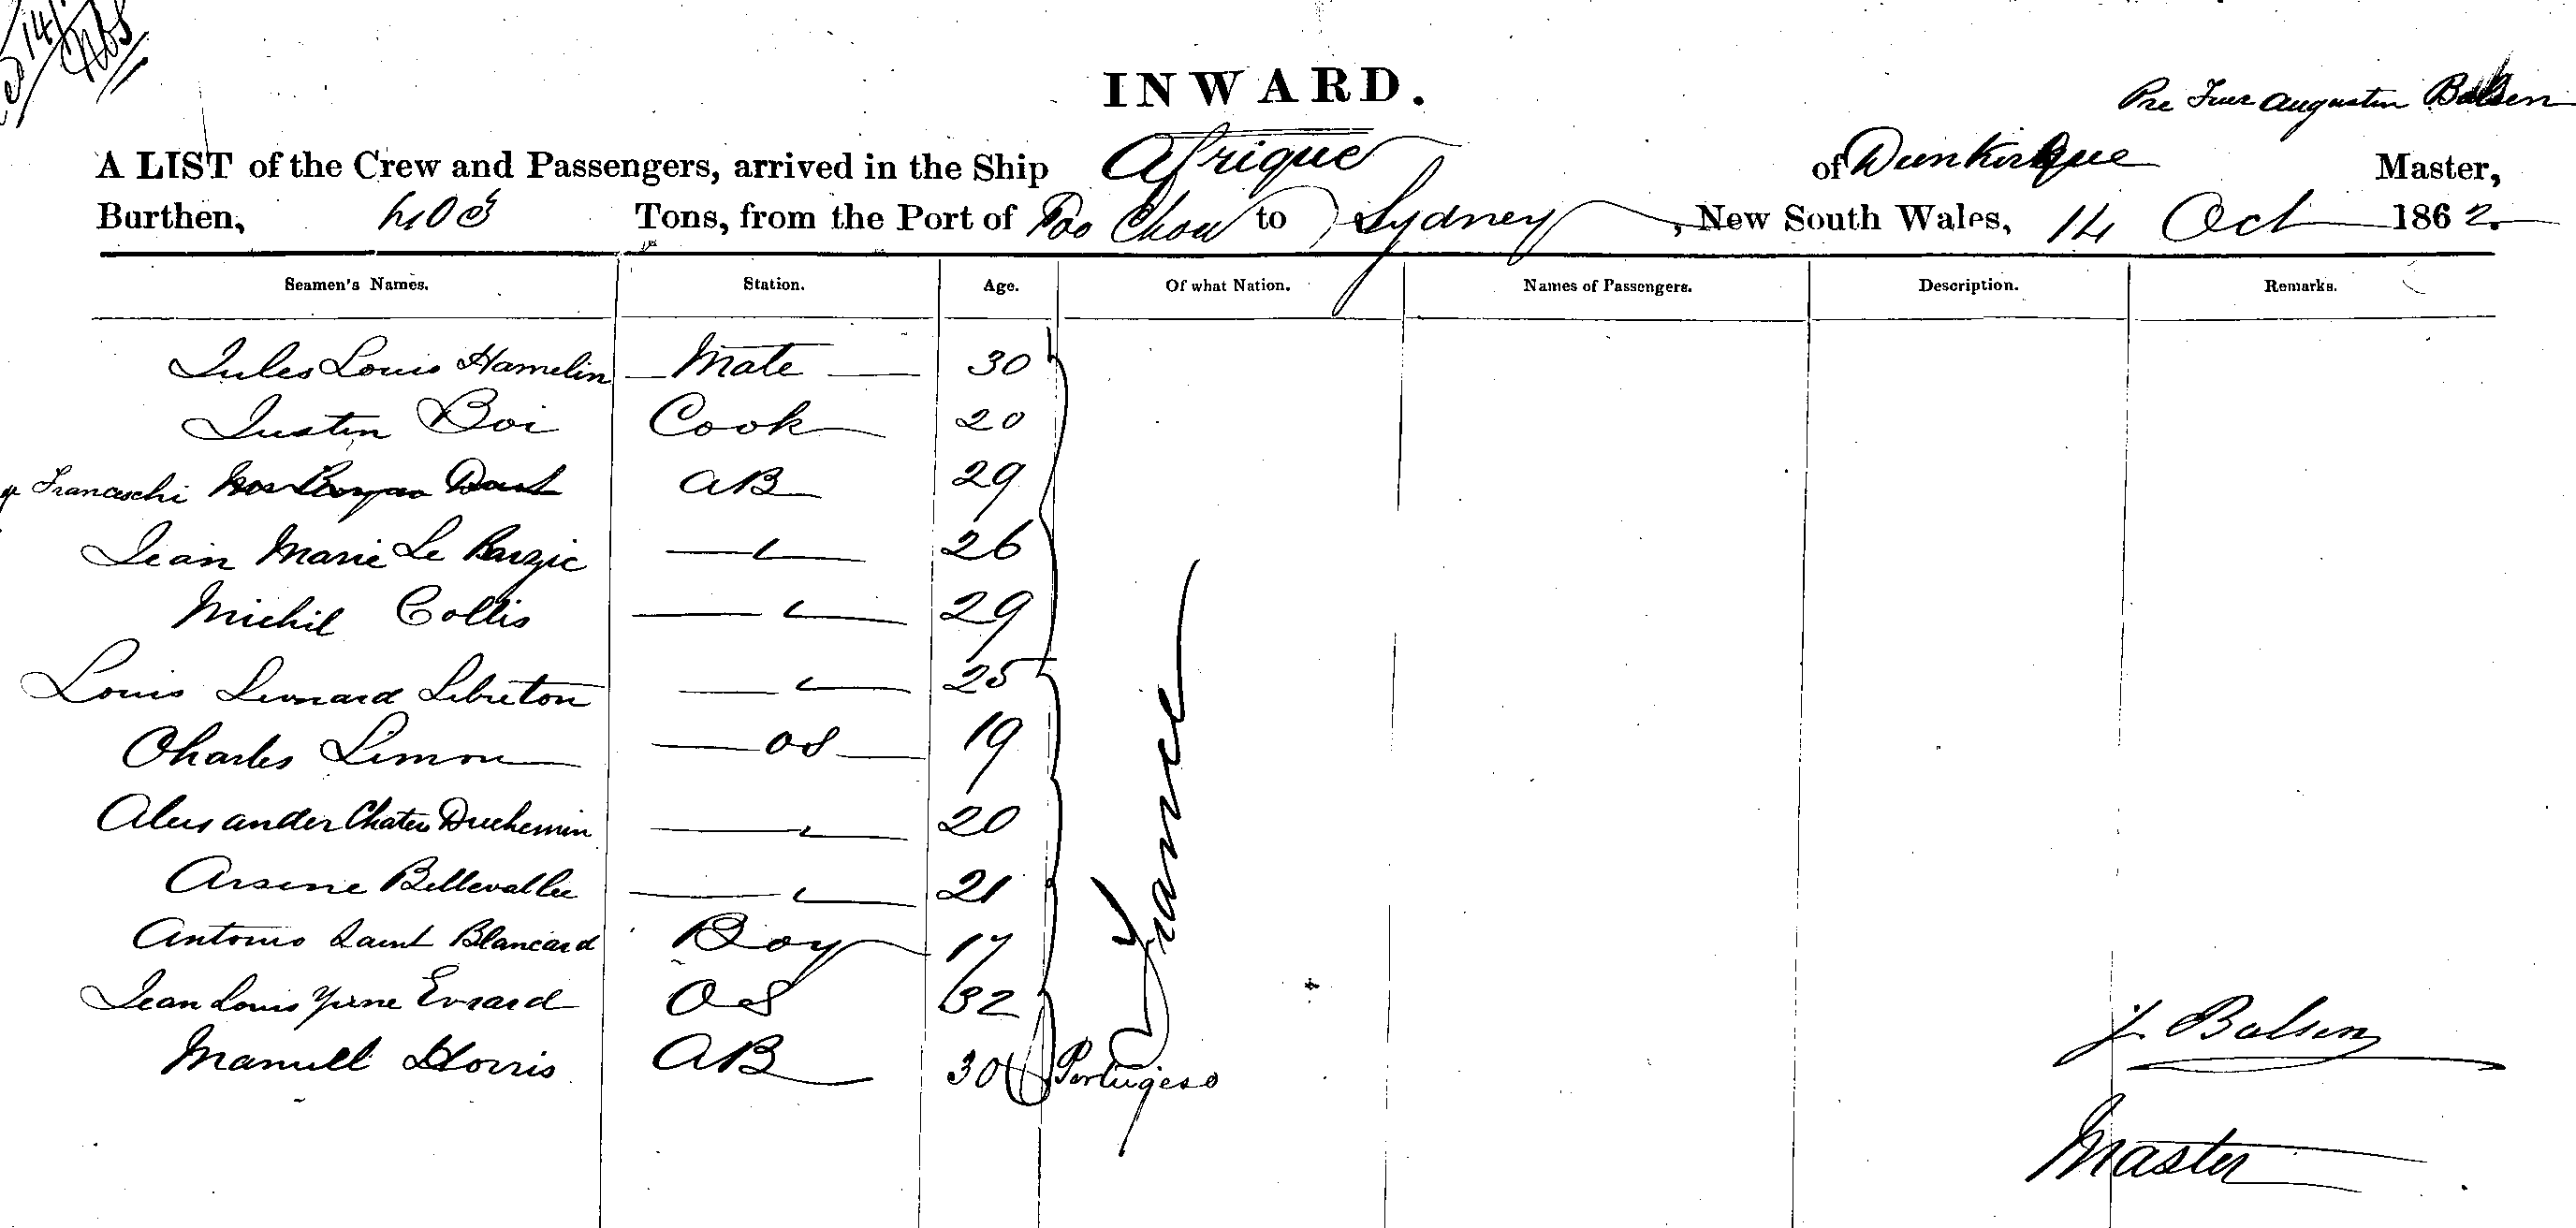 INWARD.
Augustin Balsen
A LIST of the Crew and Passengers, arrived in the Ship Afrique of Dunkirque Master,
Burthen, 403 Tons, from the Port of Foo Chow to Sydney, New South Wales, 14 Oct 1862.
Seamen's Names. Station. Age. Of what Nation. Names of Passengers. Description. Remarks.
Jules Louis Hamelin Mate 30
Justin Boi Cook 20
Franceschi AB 29
Jean Marie Le Barzic 26
Michil Collis 29
Louis Leonard Libreton 25
Charles Limon OS 19
Alexander Duchemin 20
Arsene Bellevallee 21
France
Antonio Saint Blancard Boy 17
Jean Louis Evrard OS 32
Manuell Horris AB 30 Portugeso
J. Balsen
Master